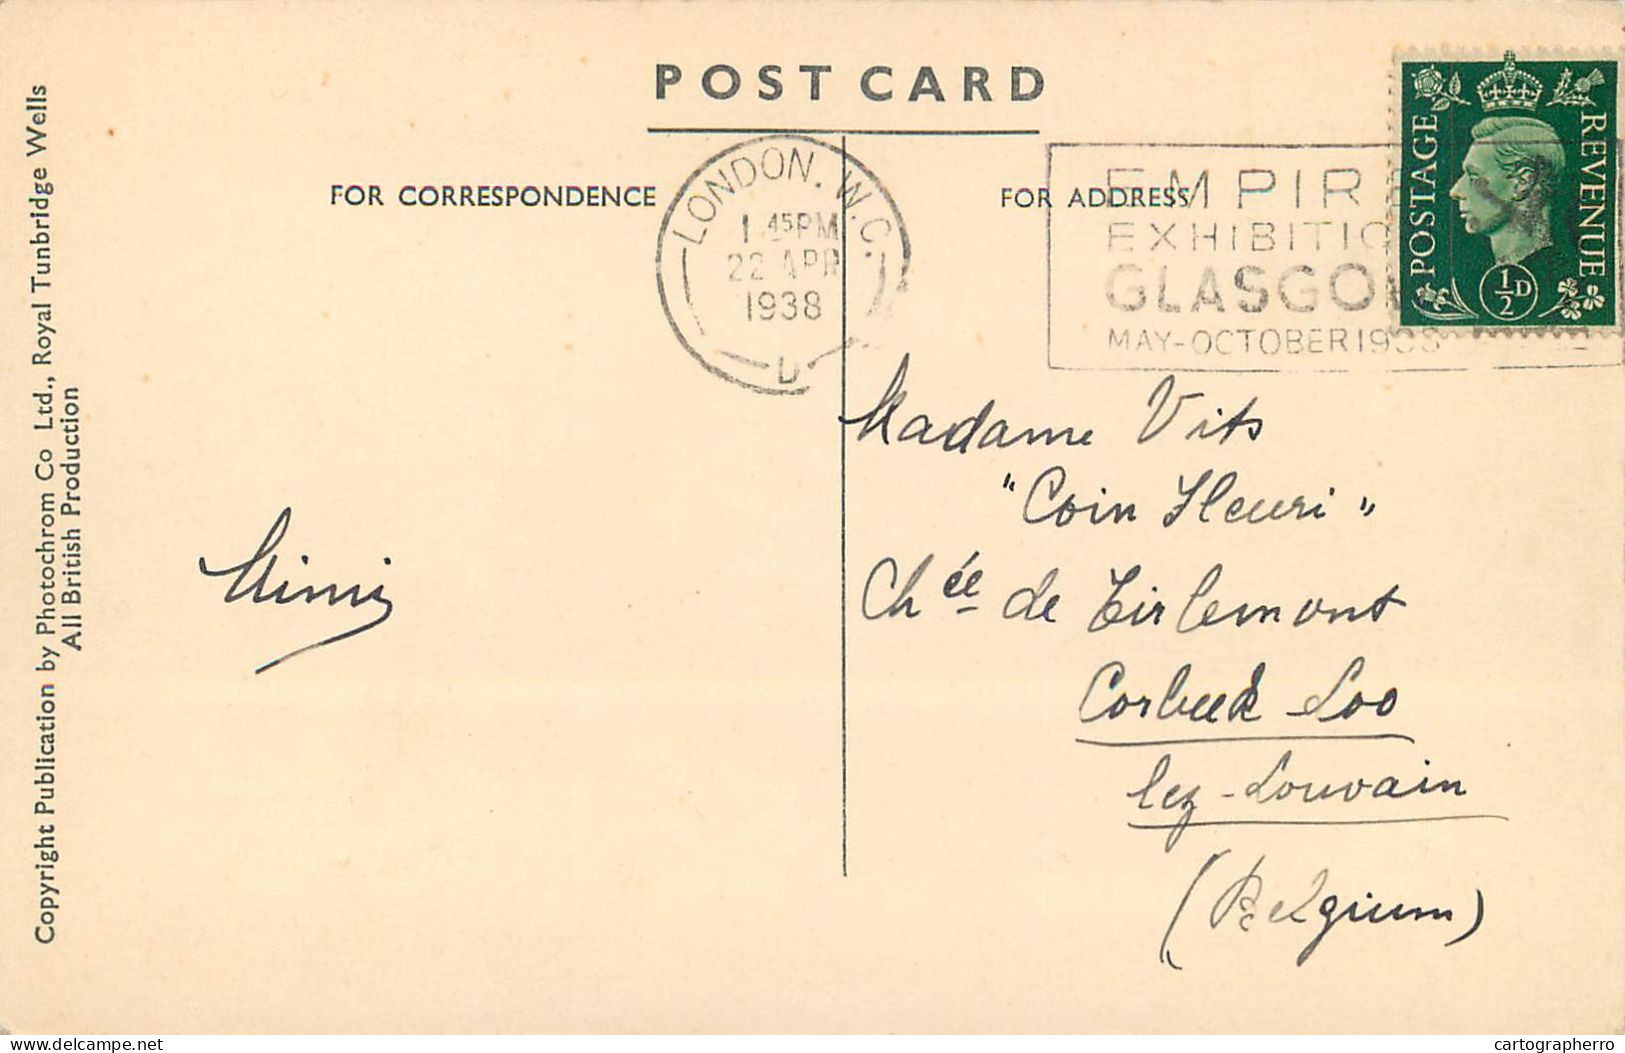 POST CARD
FOR CORRESPONDENCE
FOR ADDRESS
LONDON. W.C.
1 45 PM
22 APR
1938
D
EMPIR
EXHIBITIO
GLASGOW
MAY-OCTOBER 1938
POSTAGE
REVENUE
½D
Copyright Publication by Photochrom Co Ltd., Royal Tunbridge Wells
All British Production
Mimi
Madame Vits
"Coin Fleuri"
Chée de Tirlemont
Corbeek Loo
lez-Louvain
(Belgium)
delcampe.net
cartographerro